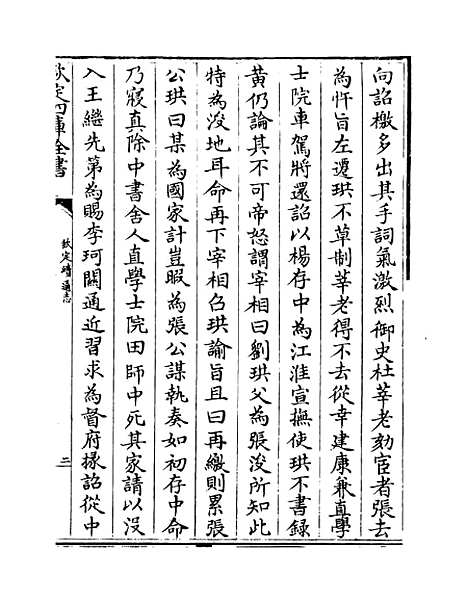 向詔檄多出其手詞氣激烈御史杜莘老劾宦者張去
為忤旨左遷珙不草制莘老得不去從幸建康兼直學
士院車駕將還詔以楊存中為江淮宣撫使珙不書錄
黃仍論其不可帝怒謂宰相曰劉珙父為張浚所知此
特為浚地耳命再下宰相召珙諭旨且曰再繳則累張
公珙曰某為國家計豈暇為張公謀執奏如初存中命
乃寢真除中書舍人直學士院田師中死其家請以沒
入王繼先第為賜李珂關通近習求為督府掾詔從中
欽定四庫全書
欽定續通志
三